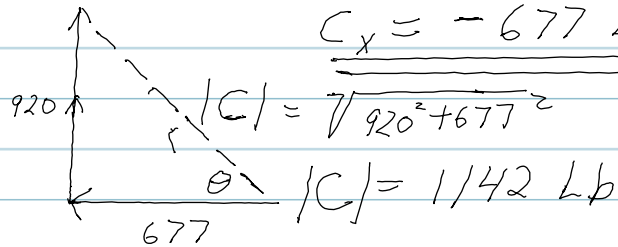 C_x = - 677
920
|C| = √920²+677²
θ
|C| = 1142 Lb
677